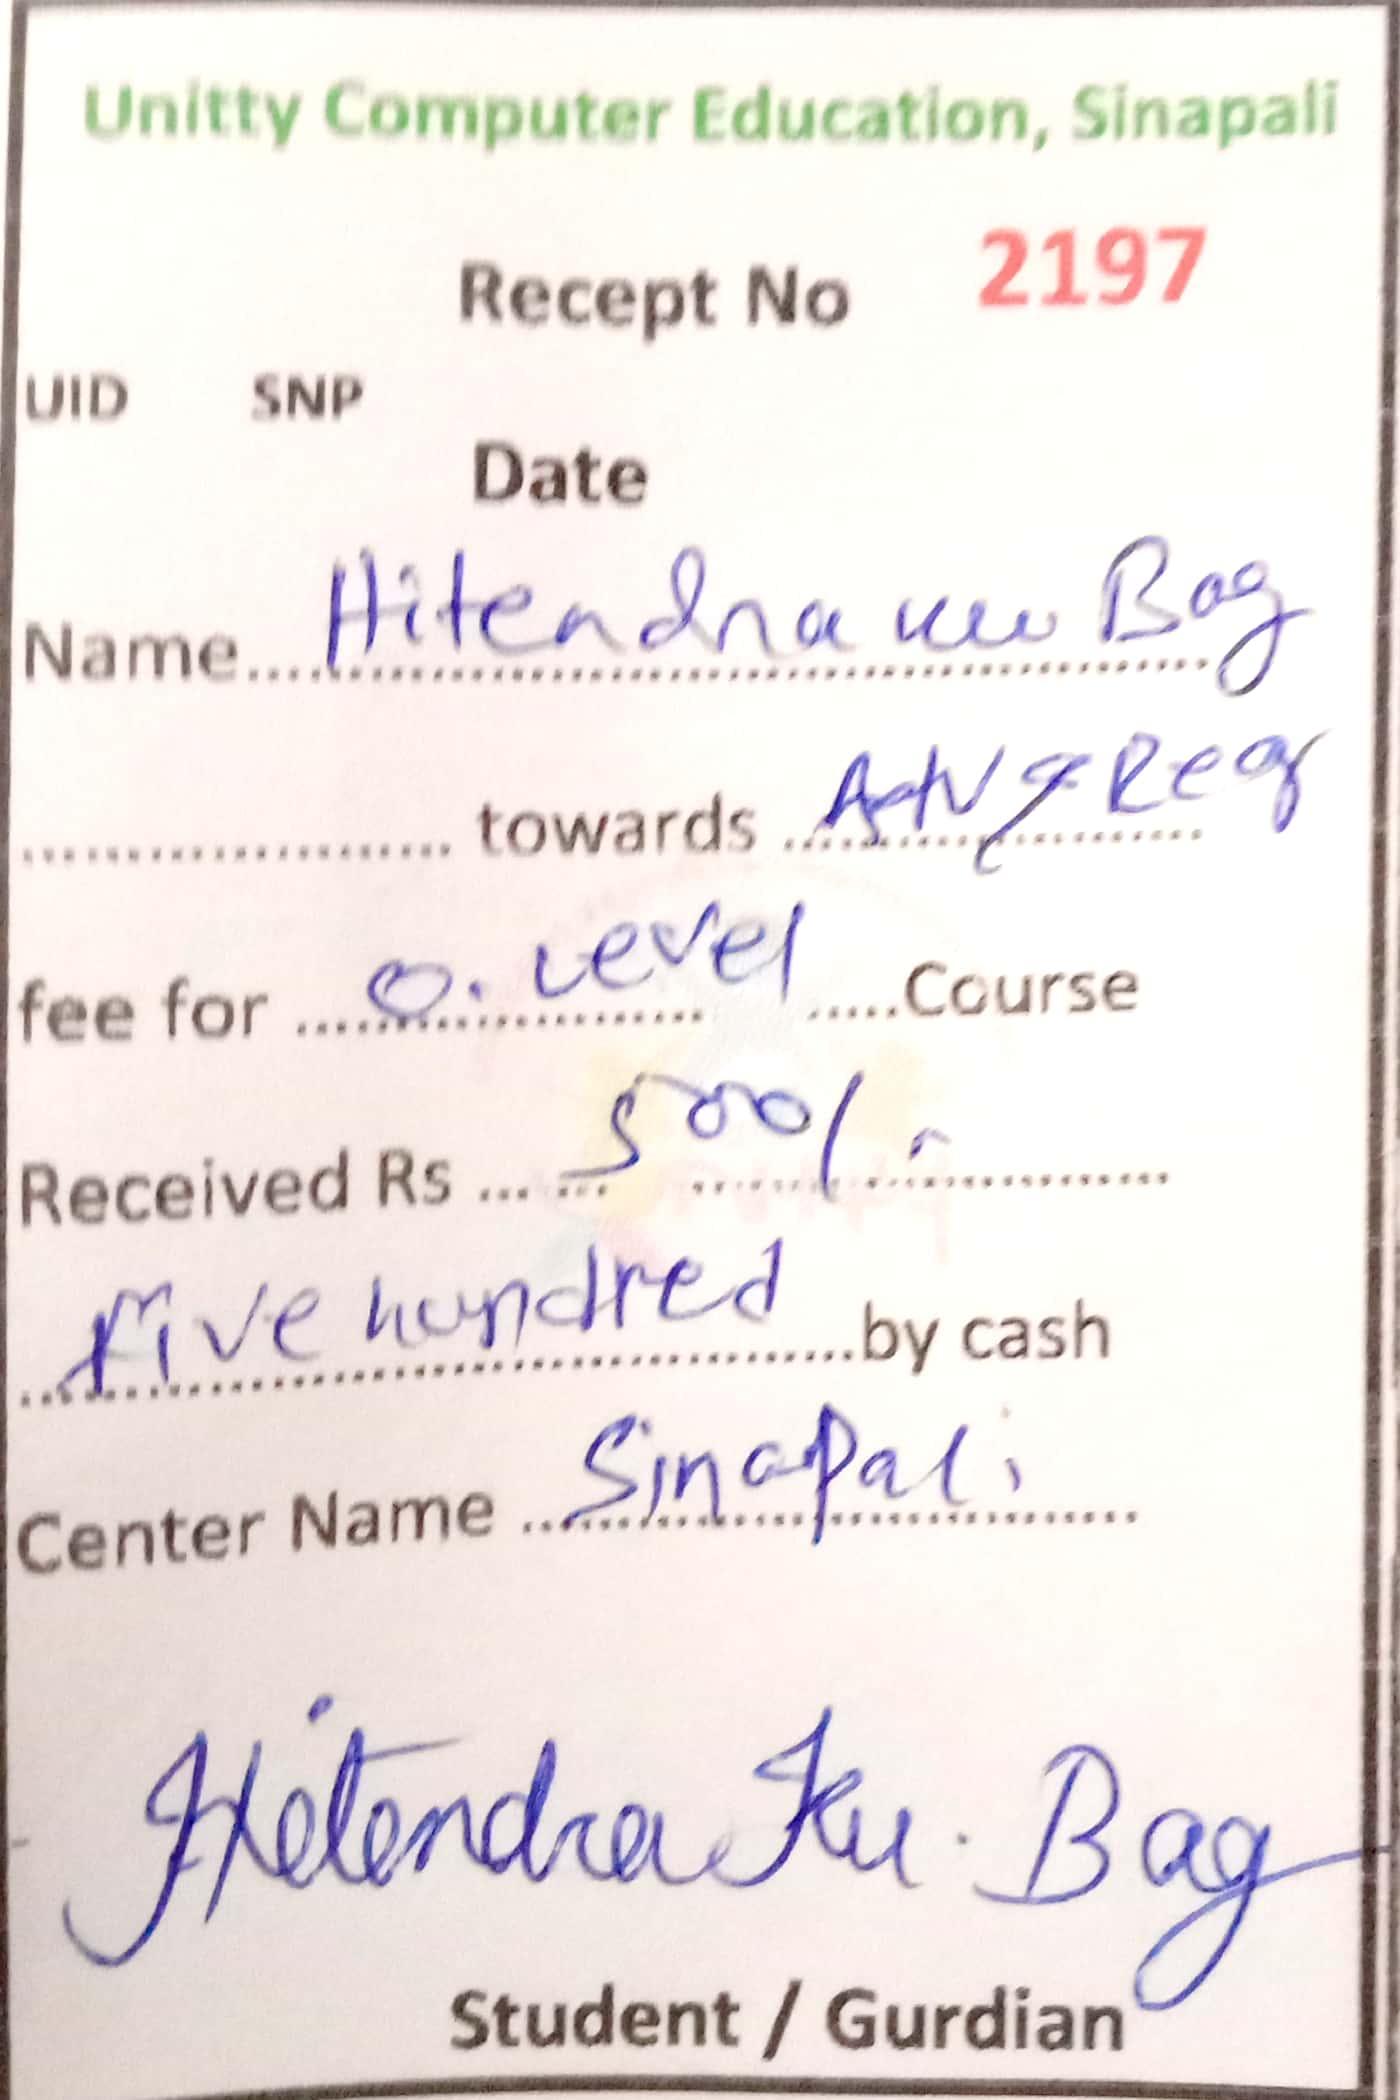 Unitty Computer Education, Sinapali
Recept No 2197
UID SNP
Date
Name.... Hitendra Ku Bag
.................... towards ... Adv & Reg
fee for ... O. Level .....Course
Received Rs ... 500/-
five hundred ...by cash
Center Name ... Sinapali
Hitendra Ku. Bag
Student / Gurdian